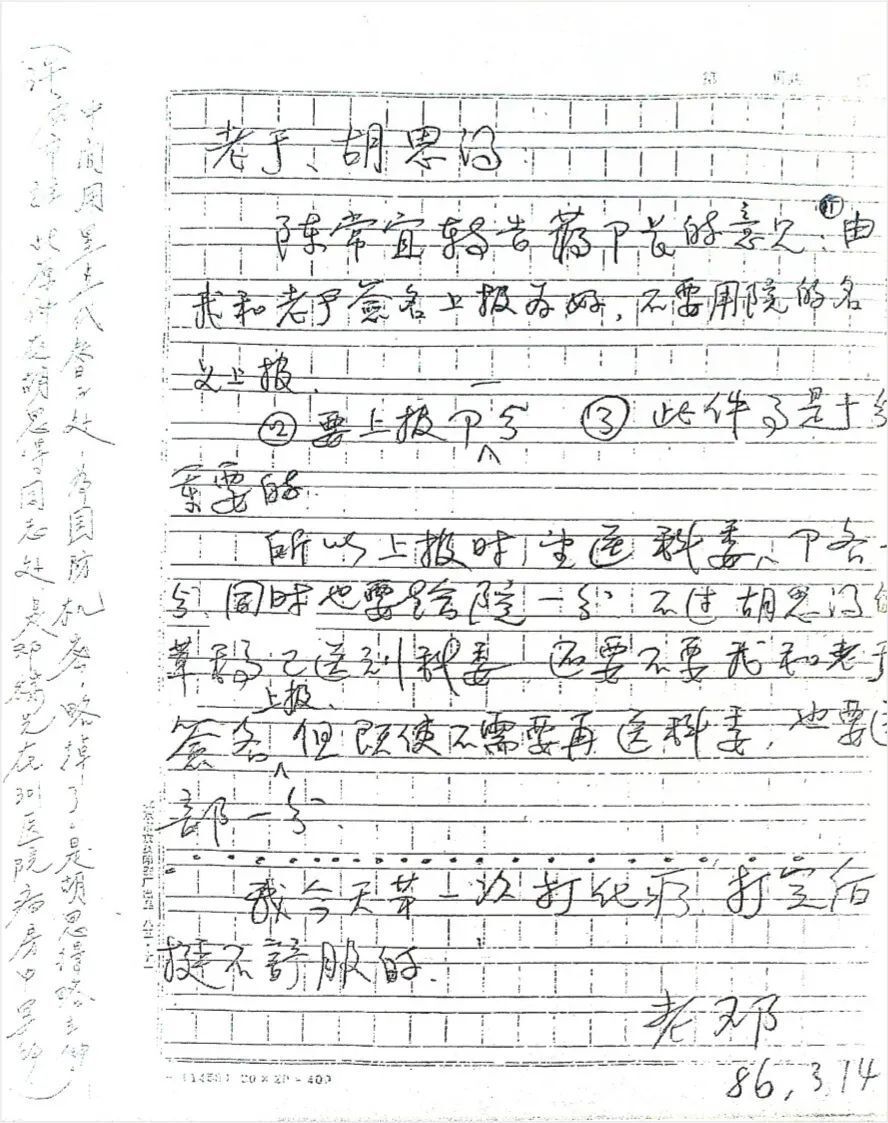 老于、胡思得
陈常宜转告蒋卩长的意见:①由
我和老于签名上报为好,不要用院的名
义上报.
②要上报卩一分 ③此件事是十分
重要的.
所以上报时 送科委、卩各一
分,同时也要给院一分 不过胡思得的
草稿已送到科委 还要不要我和老于
签名上报.但既使不需要再送科委,也要送
部一分.
我今天第一次打化疗,打完后
挺不舒服的.
老邓
86.3.14
(1458) 20×20=400
中间用黑点代替之处,为国防机密,略掉了。是胡思得略去的
此原件在胡思得同志处 是邓稼先在301医院病房中写的)